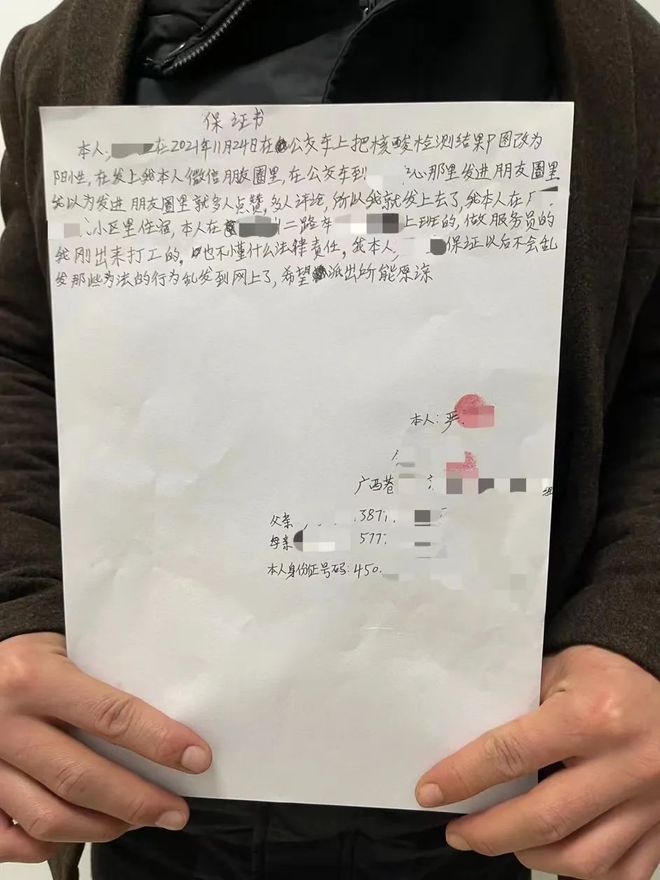 保证书
本人, 在2021年11月24日在公交车上把核酸检测结果P图改为
阳性,在发上我本人微信朋友圈里,在公交车到 心那里发进朋友圈里
我以为发进朋友圈里就多人点赞,多人评论,所以我就发上去了,我本人在
小区里住宿,本人在 二路 上班的,做服务员的
我刚出来打工的。也不懂什么法律责任。我本人, 保证以后不会乱
发那些为法的行为乱发到网上了,希望派出所能原谅
本人:严
广西苍 组
父亲 387
母亲 577
本人身份证号码:450